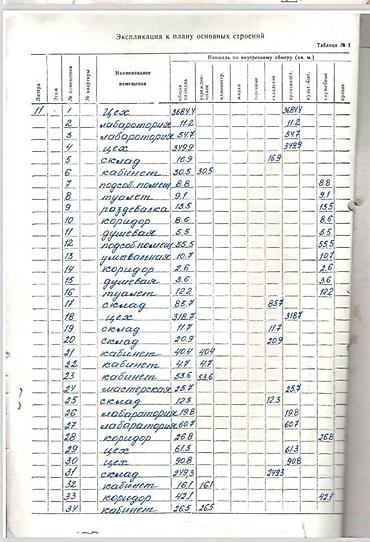 Экспликация к плану основных строений
Таблица № 1
Литера Этаж № помещения № квартиры Наименование помещения Площадь по внутреннему обмеру (кв. м.)
общая площадь учрежден-ческие администр. жилая торговые складские производст. культ.-быт. служебные прочие
11 1 цех 3684.4 3684.4
2 лаборатория 11.2 11.2
3 лаборатория 54.7 54.7
4 цех 349.9 349.9
5 склад 16.9 16.9
6 кабинет 30.5 30.5
7 подсоб.помещ. 8.8 8.8
8 туалет 9.1 9.1
9 раздевалка 13.5 13.5
10 коридор 8.6 8.6
11 душевая 5.5 5.5
12 подсоб.помещ. 55.5 55.5
13 умывальная 10.7 10.7
14 коридор 2.6 2.6
15 душевая 3.6 3.6
16 туалет 12.2 12.2
17 склад 85.7 85.7
18 цех 318.7 318.7
19 склад 11.7 11.7
20 склад 20.9 20.9
21 кабинет 40.4 40.4
22 кабинет 4.7 4.7
23 кабинет 53.6 53.6
24 мастерская 25.7 25.7
25 склад 12.3 12.3
26 лаборатория 19.8 19.8
27 лаборатория 60.7 60.7
28 коридор 26.8 26.8
29 цех 61.3 61.3
30 цех 90.8 90.8
31 склад 249.3 249.3
32 кабинет 16.1 16.1
33 коридор 42.1 42.1
34 кабинет 26.5 26.5